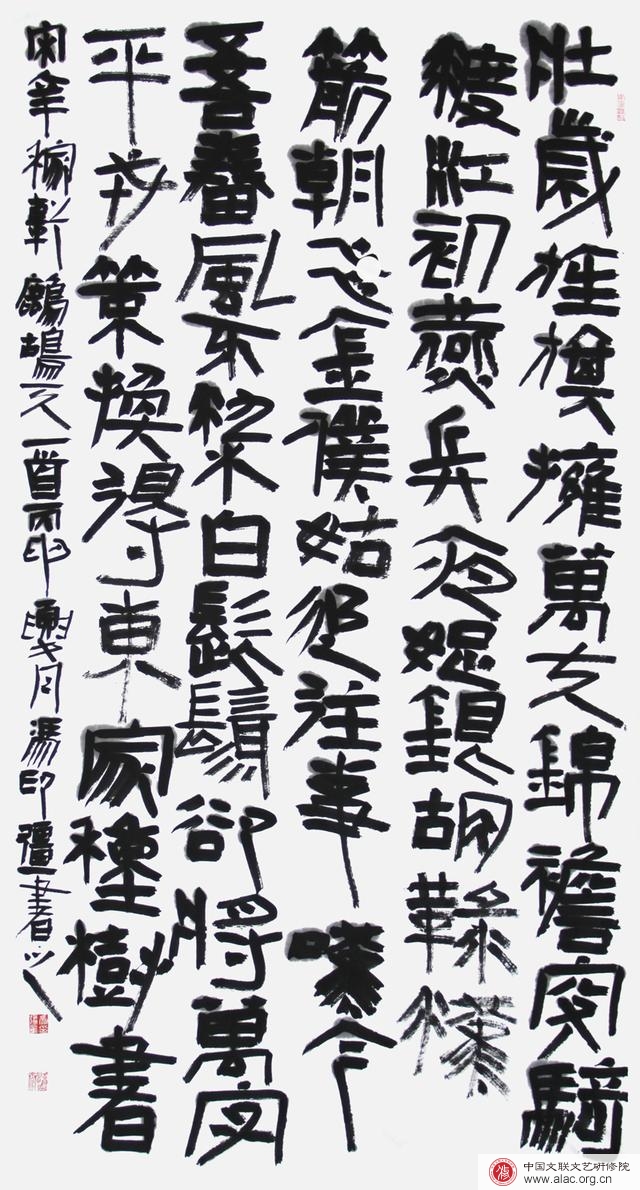 壯歲旌旗擁萬夫錦襜突騎
渡江初燕兵夜娖銀胡䩮漢
箭朝飛金僕姑追往事嘆今
吾春風不染白髭鬚卻將萬字
平戎策換得東家種樹書
宋辛稼軒鷓鴣天一首丙申七月馮印彊書之
中国文联文艺研修院
www.alac.org.cn